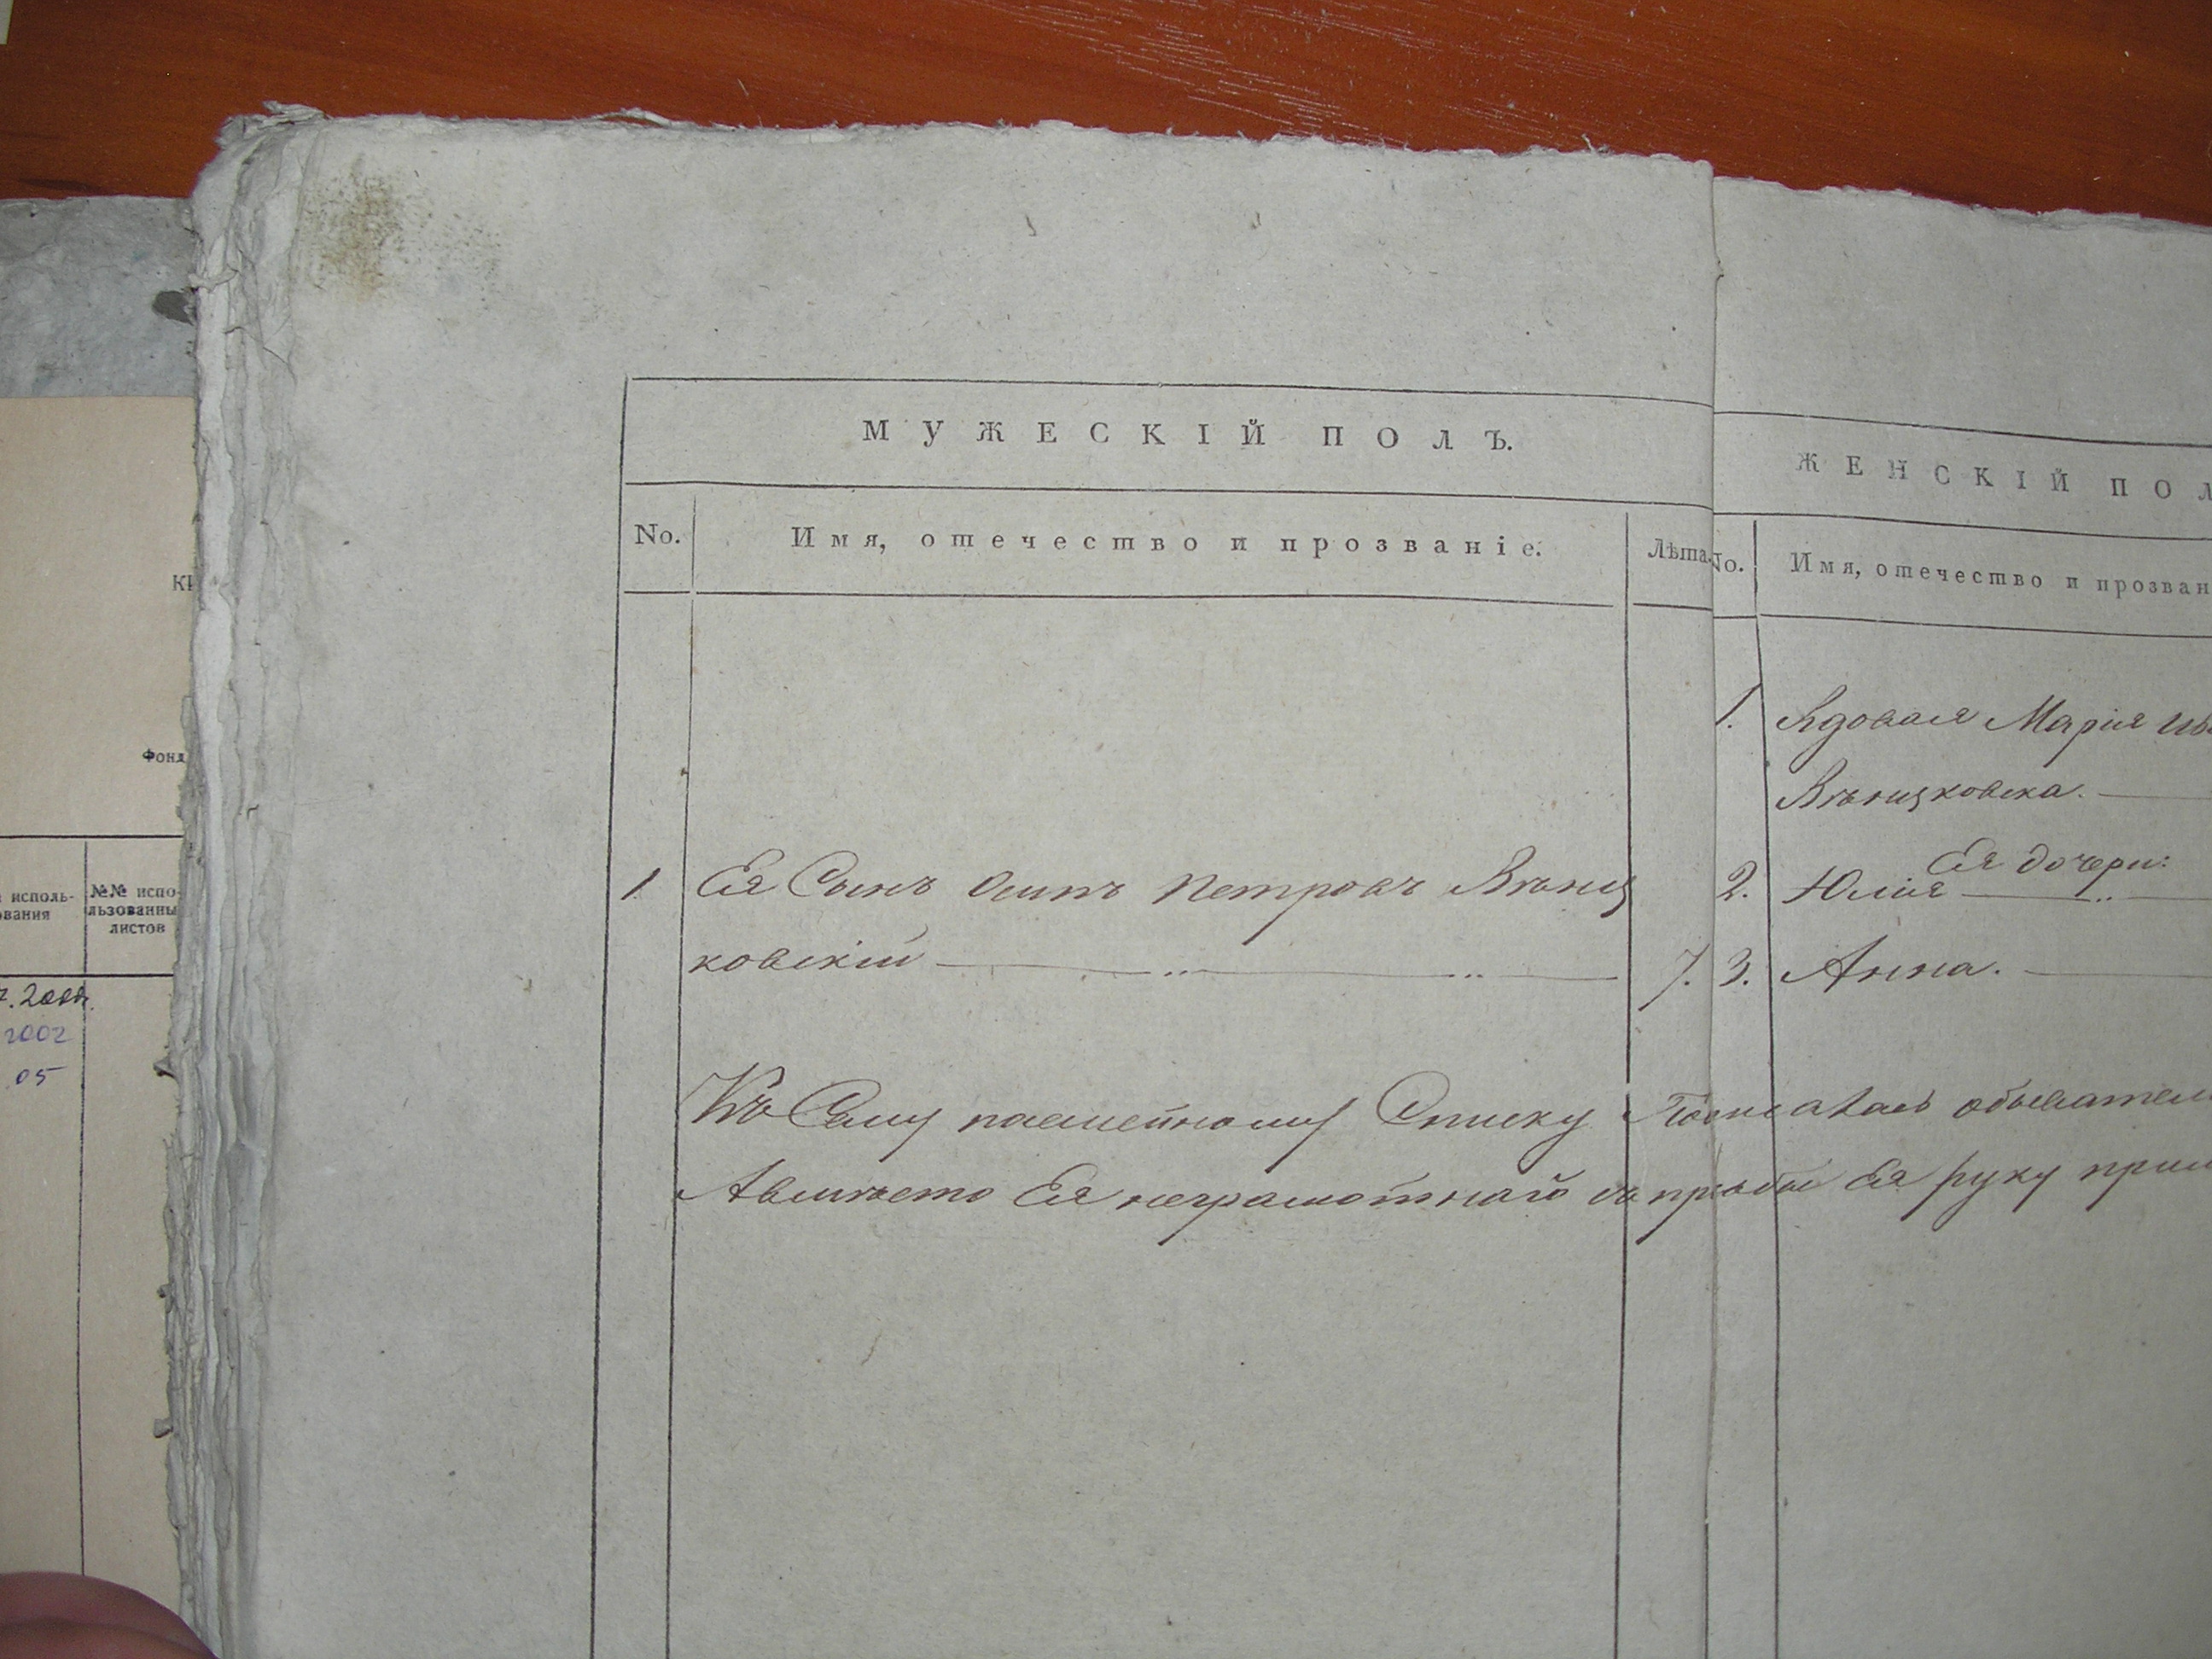 МУЖЕСКІЙ ПОЛЪ.
No. Имя, отечество и прозваніе. Лѣта.
1 Ея Сынъ Осипъ Петровъ Вѣниц
ковскій 7.
Къ Сему посемейному Списку Подписалась обывател
А вмѣсто Ея неграмотной по прозбѣ Ея руку при
ЖЕНСКІЙ ПОЛ
No. Имя, отечество и прозван
1. Вдовая Марія Ив
Вѣницковска.
Ея дочери:
2. Юлія
3. Анна.
КР
Фонд
исполь-
ования
№№ испо-
льзованны
листов
2002
05